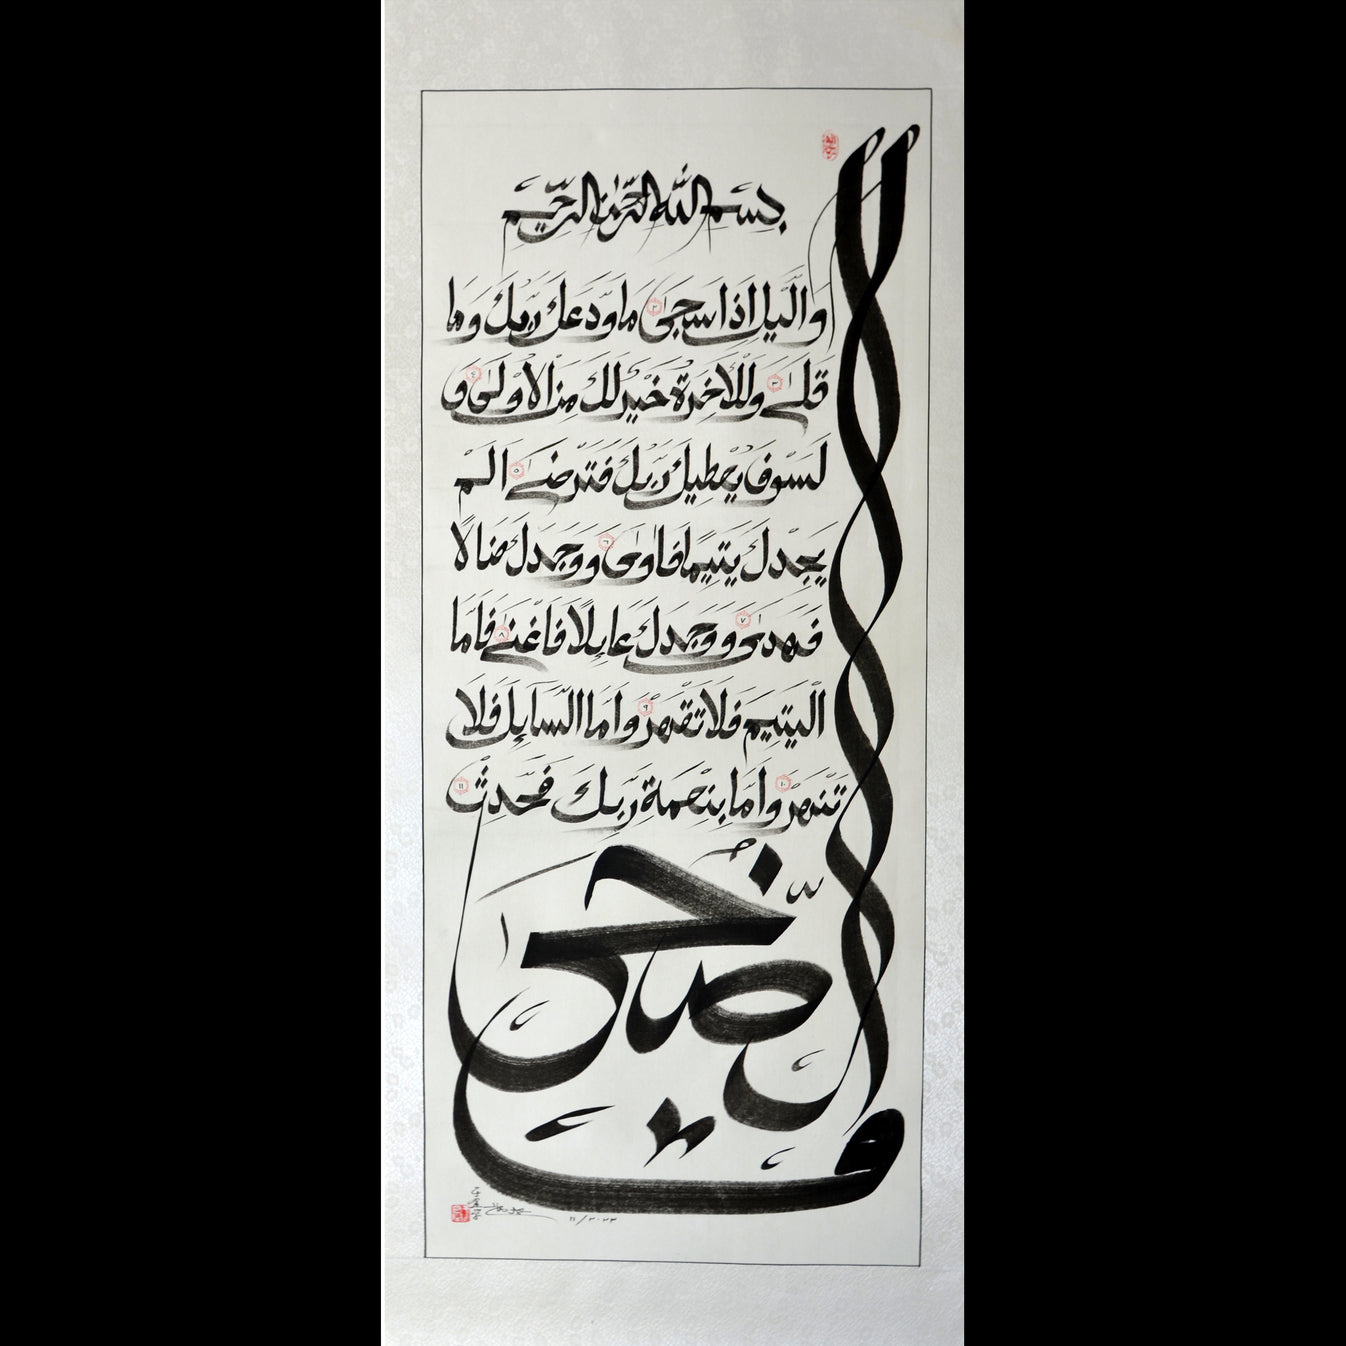 بِسْمِ اللّٰهِ الرَّحْمٰنِ الرَّحِيْمِ
وَالضُّحٰى
وَالَّيْلِ اِذَا سَجٰى ٢ مَا وَدَّعَكَ رَبُّكَ وَمَا
قَلٰى ٣ وَلَلْاٰخِرَةُ خَيْرٌ لَكَ مِنَ الْاُوْلٰى ٤ وَ
لَسَوْفَ يُعْطِيْكَ رَبُّكَ فَتَرْضٰى ٥ اَلَمْ
يَجِدْكَ يَتِيْمًا فَاٰوٰى ٦ وَوَجَدَكَ ضَالًّا
فَهَدٰى ٧ وَوَجَدَكَ عَائِلًا فَاَغْنٰى ٨ فَاَمَّا
الْيَتِيْمَ فَلَا تَقْهَرْ ٩ وَاَمَّا السَّائِلَ فَلَا
تَنْهَرْ ١٠ وَاَمَّا بِنِعْمَةِ رَبِّكَ فَحَدِّثْ ١١